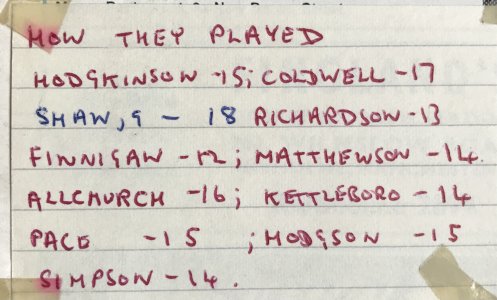 HOW THEY PLAYED
HODGKINSON - 15; COLDWELL - 17
SHAW, G - 18 RICHARDSON - 13
FINNIGAN - 12; MATTHEWSON - 14.
ALLCHURCH - 16; KETTLEBORO - 14
PACE - 15 ; HODGSON - 15
SIMPSON - 14.